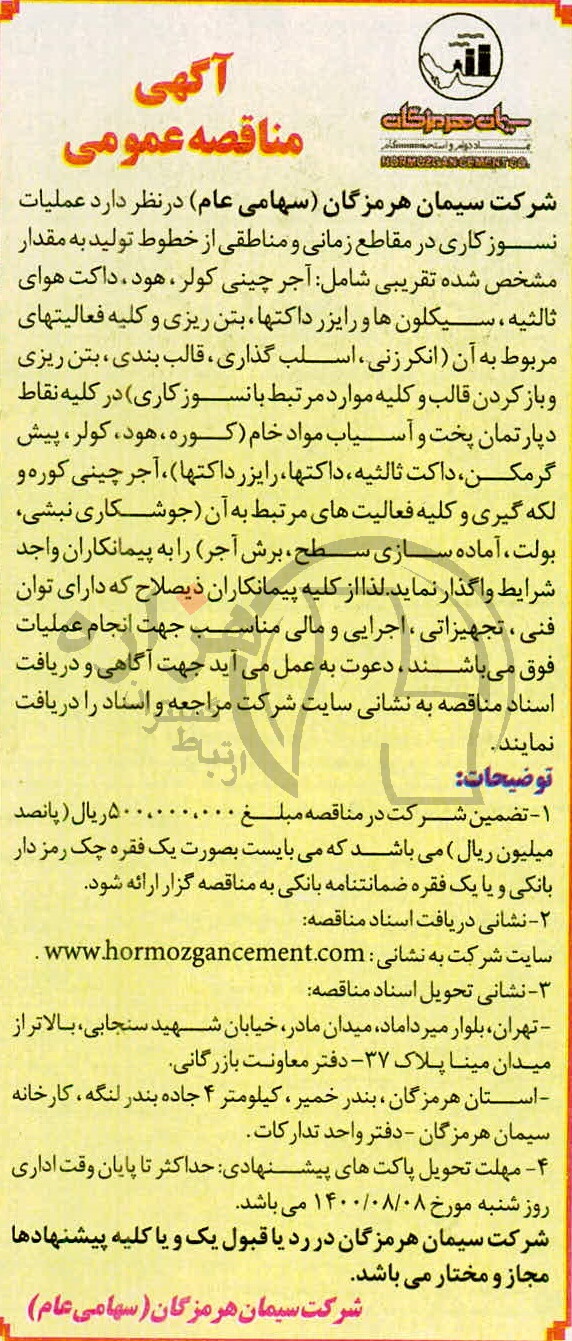 سیمان هرمزگان
نماد دوام و استحکام
HORMOZGAN CEMENT CO.
آگهی
مناقصه عمومی
شرکت سیمان هرمزگان (سهامی عام) در نظر دارد عملیات
نسوز کاری در مقاطع زمانی و مناطقی از خطوط تولید به مقدار
مشخص شده تقریبی شامل: آجر چینی کولر، هود، داکت هوای
ثالثیه، سیکلون ها و رایزر داکتها، بتن ریزی و کلیه فعالیتهای
مربوط به آن (انکر زنی، اسلب گذاری، قالب بندی، بتن ریزی
و باز کردن قالب و کلیه موارد مرتبط با نسوز کاری) در کلیه نقاط
دپارتمان پخت و آسیاب مواد خام (کوره، هود، کولر، پیش
گرمکن، داکت ثالثیه، داکتها، رایزر داکتها)، آجر چینی کوره و
لکه گیری و کلیه فعالیت های مرتبط به آن (جوشکاری نبشی،
بولت، آماده سازی سطح، برش آجر) را به پیمانکاران واجد
شرایط واگذار نماید. لذا از کلیه پیمانکاران ذیصلاح که دارای توان
فنی، تجهیزاتی، اجرایی و مالی مناسب جهت انجام عملیات
فوق می باشند، دعوت به عمل می آید جهت آگاهی و دریافت
اسناد مناقصه به نشانی سایت شرکت مراجعه و اسناد را دریافت
نمایند.
توضیحات:
۱-تضمین شرکت در مناقصه مبلغ ۵۰۰،۰۰۰،۰۰۰ ریال (پانصد
میلیون ریال) می باشد که می بایست بصورت یک فقره چک رمز دار
بانکی و یا یک فقره ضمانتنامه بانکی به مناقصه گزار ارائه شود.
۲-نشانی دریافت اسناد مناقصه:
سایت شرکت به نشانی: www.hormozgancement.com .
۳-نشانی تحویل اسناد مناقصه:
-تهران، بلوار میرداماد، میدان مادر، خیابان شهید سنجابی، بالاتر از
میدان مینا پلاک ۳۷- دفتر معاونت بازرگانی.
-استان هرمزگان، بندر خمیر، کیلومتر ۴ جاده بندر لنگه، کارخانه
سیمان هرمزگان -دفتر واحد تدارکات.
۴- مهلت تحویل پاکت های پیشنهادی: حداکثر تا پایان وقت اداری
روز شنبه مورخ ۱۴۰۰/۰۸/۰۸ می باشد.
شرکت سیمان هرمزگان در رد یا قبول یک و یا کلیه پیشنهادها
مجاز و مختار می باشد.
شرکت سیمان هرمزگان (سهامی عام)